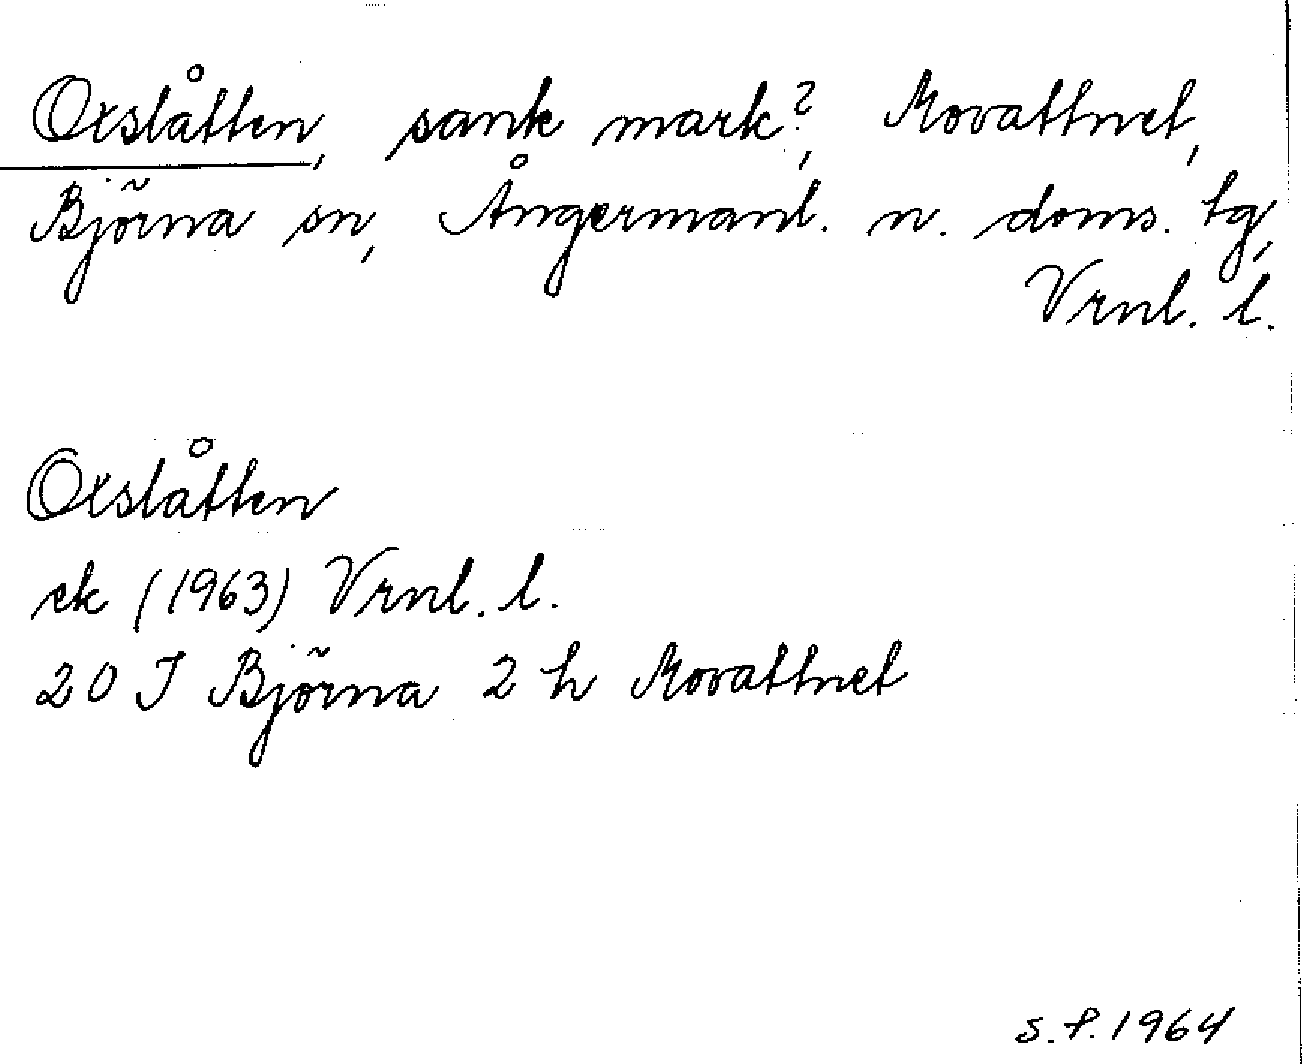 Oxslåtten, sank mark?, Movattnet,
Björna sn, Ångermanl. n. doms. tg,
Vrnl. l.
Oxslåtten
ek (1963) Vrnl. l.
20 I Björna 2 h Movattnet
s. f. 1964